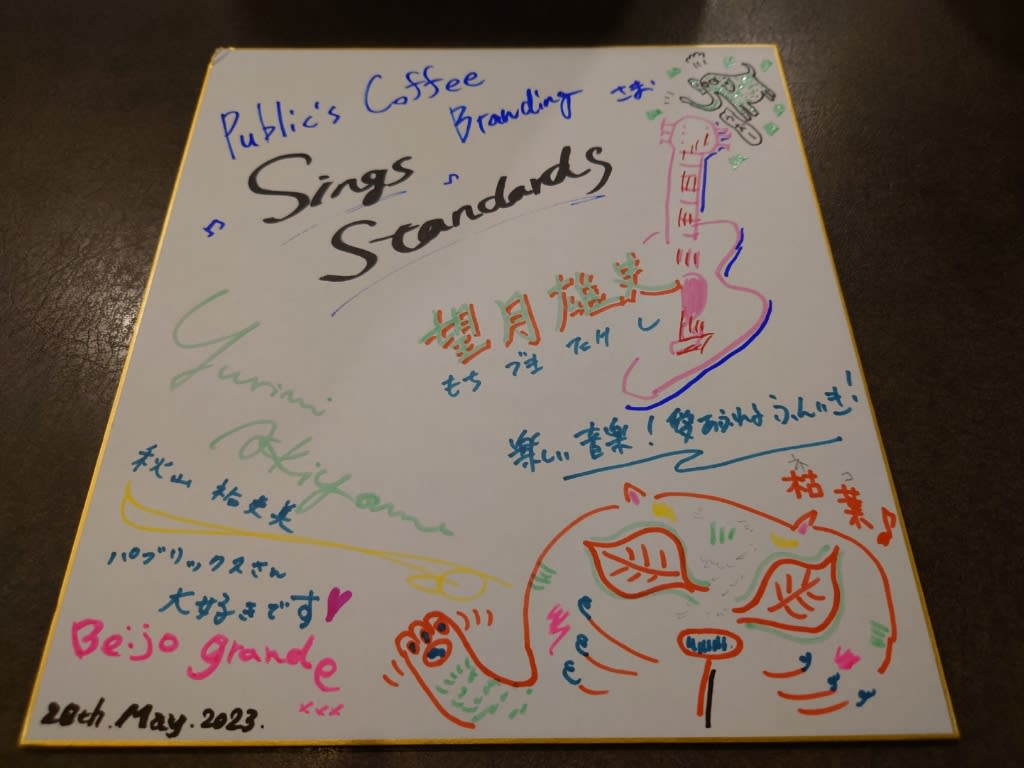 Public's Coffee
Branding さま
Sings
Standards
望月雄史
もち づき たけ し
楽しい音楽!愛あふれるふんいき!
枯葉♪
Yurimi
Akiyama
秋山
パブリックスさん
大好きです♥
Beijo grande
xxx
28th. May. 2023.